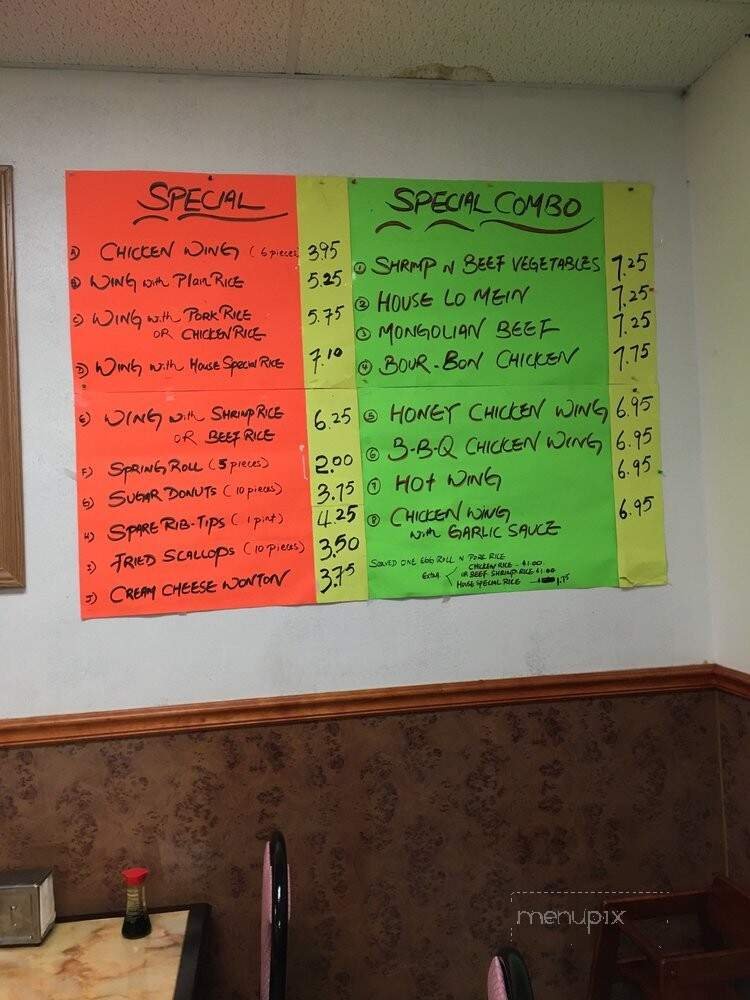 SPECIAL
A) CHICKEN WING (6 pieces) 3.95
B) WING with PLAIN RICE 5.25
C) WING with PORK RICE 5.75
OR CHICKEN RICE
D) WING with HOUSE SPECIAL RICE 7.10
E) WING with SHRIMP RICE 6.25
OR BEEF RICE
F) SPRING ROLL (5 pieces) 2.00
G) SUGAR DONUTS (10 pieces) 3.75
H) SPARE RIB-TIPS (1 pint) 4.25
I) FRIED SCALLOPS (10 pieces) 3.50
J) CREAM CHEESE WONTON 3.75
SPECIAL COMBO
① SHRIMP N BEEF VEGETABLES 7.25
② HOUSE LO MEIN 7.25
③ MONGOLIAN BEEF 7.25
④ BOUR-BON CHICKEN 7.75
⑤ HONEY CHICKEN WING 6.95
⑥ B-B-Q CHICKEN WING 6.95
⑦ HOT WING 6.95
⑧ CHICKEN WING 6.95
with GARLIC SAUCE
SERVED ONE EGG ROLL N PORK RICE
CHICKEN RICE - $1.00
EXTRA OR BEEF SHRIMP RICE $1.00
HOUSE SPECIAL RICE 1.75
menupix